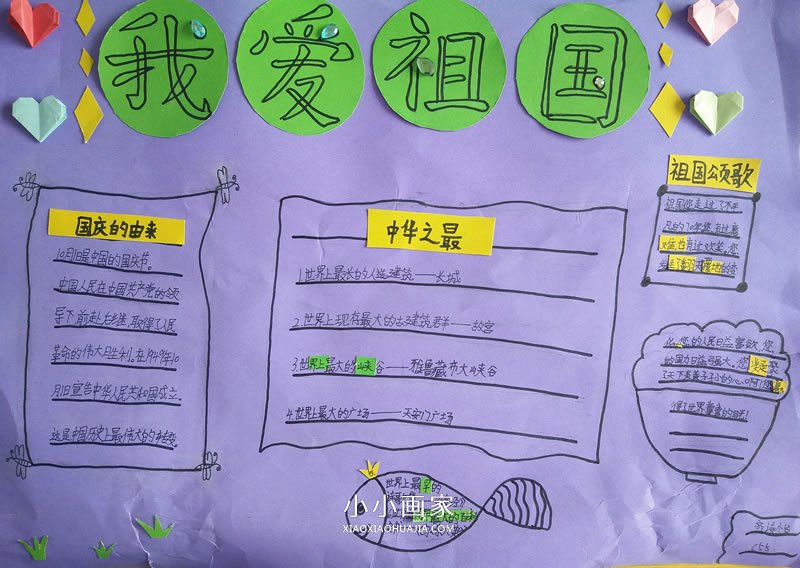 我爱祖国
国庆的由来
10月1日是中国的国庆节。
中国人民在中国共产党的领
导下前赴后继,取得了人民
革命的伟大胜利。在1949年10
月1日宣告中华人民共和国成立,
这是中国历史上最伟大的转变
中华之最
1.世界上最长的人造建筑——长城
2.世界上现存最大的古建筑群——故宫
3.世界上最大的峡谷——雅鲁藏布大峡谷
4.世界上最大的广场——天安门广场
祖国颂歌
祖国您走过了不平
凡的70年您有过悲
有过欢笑,您
您的人民日益富饮,您
的国力日益强大,您
了天下
得了世界
世界上最早的
小小画家
XIAOXIAOHUAJIA.COM